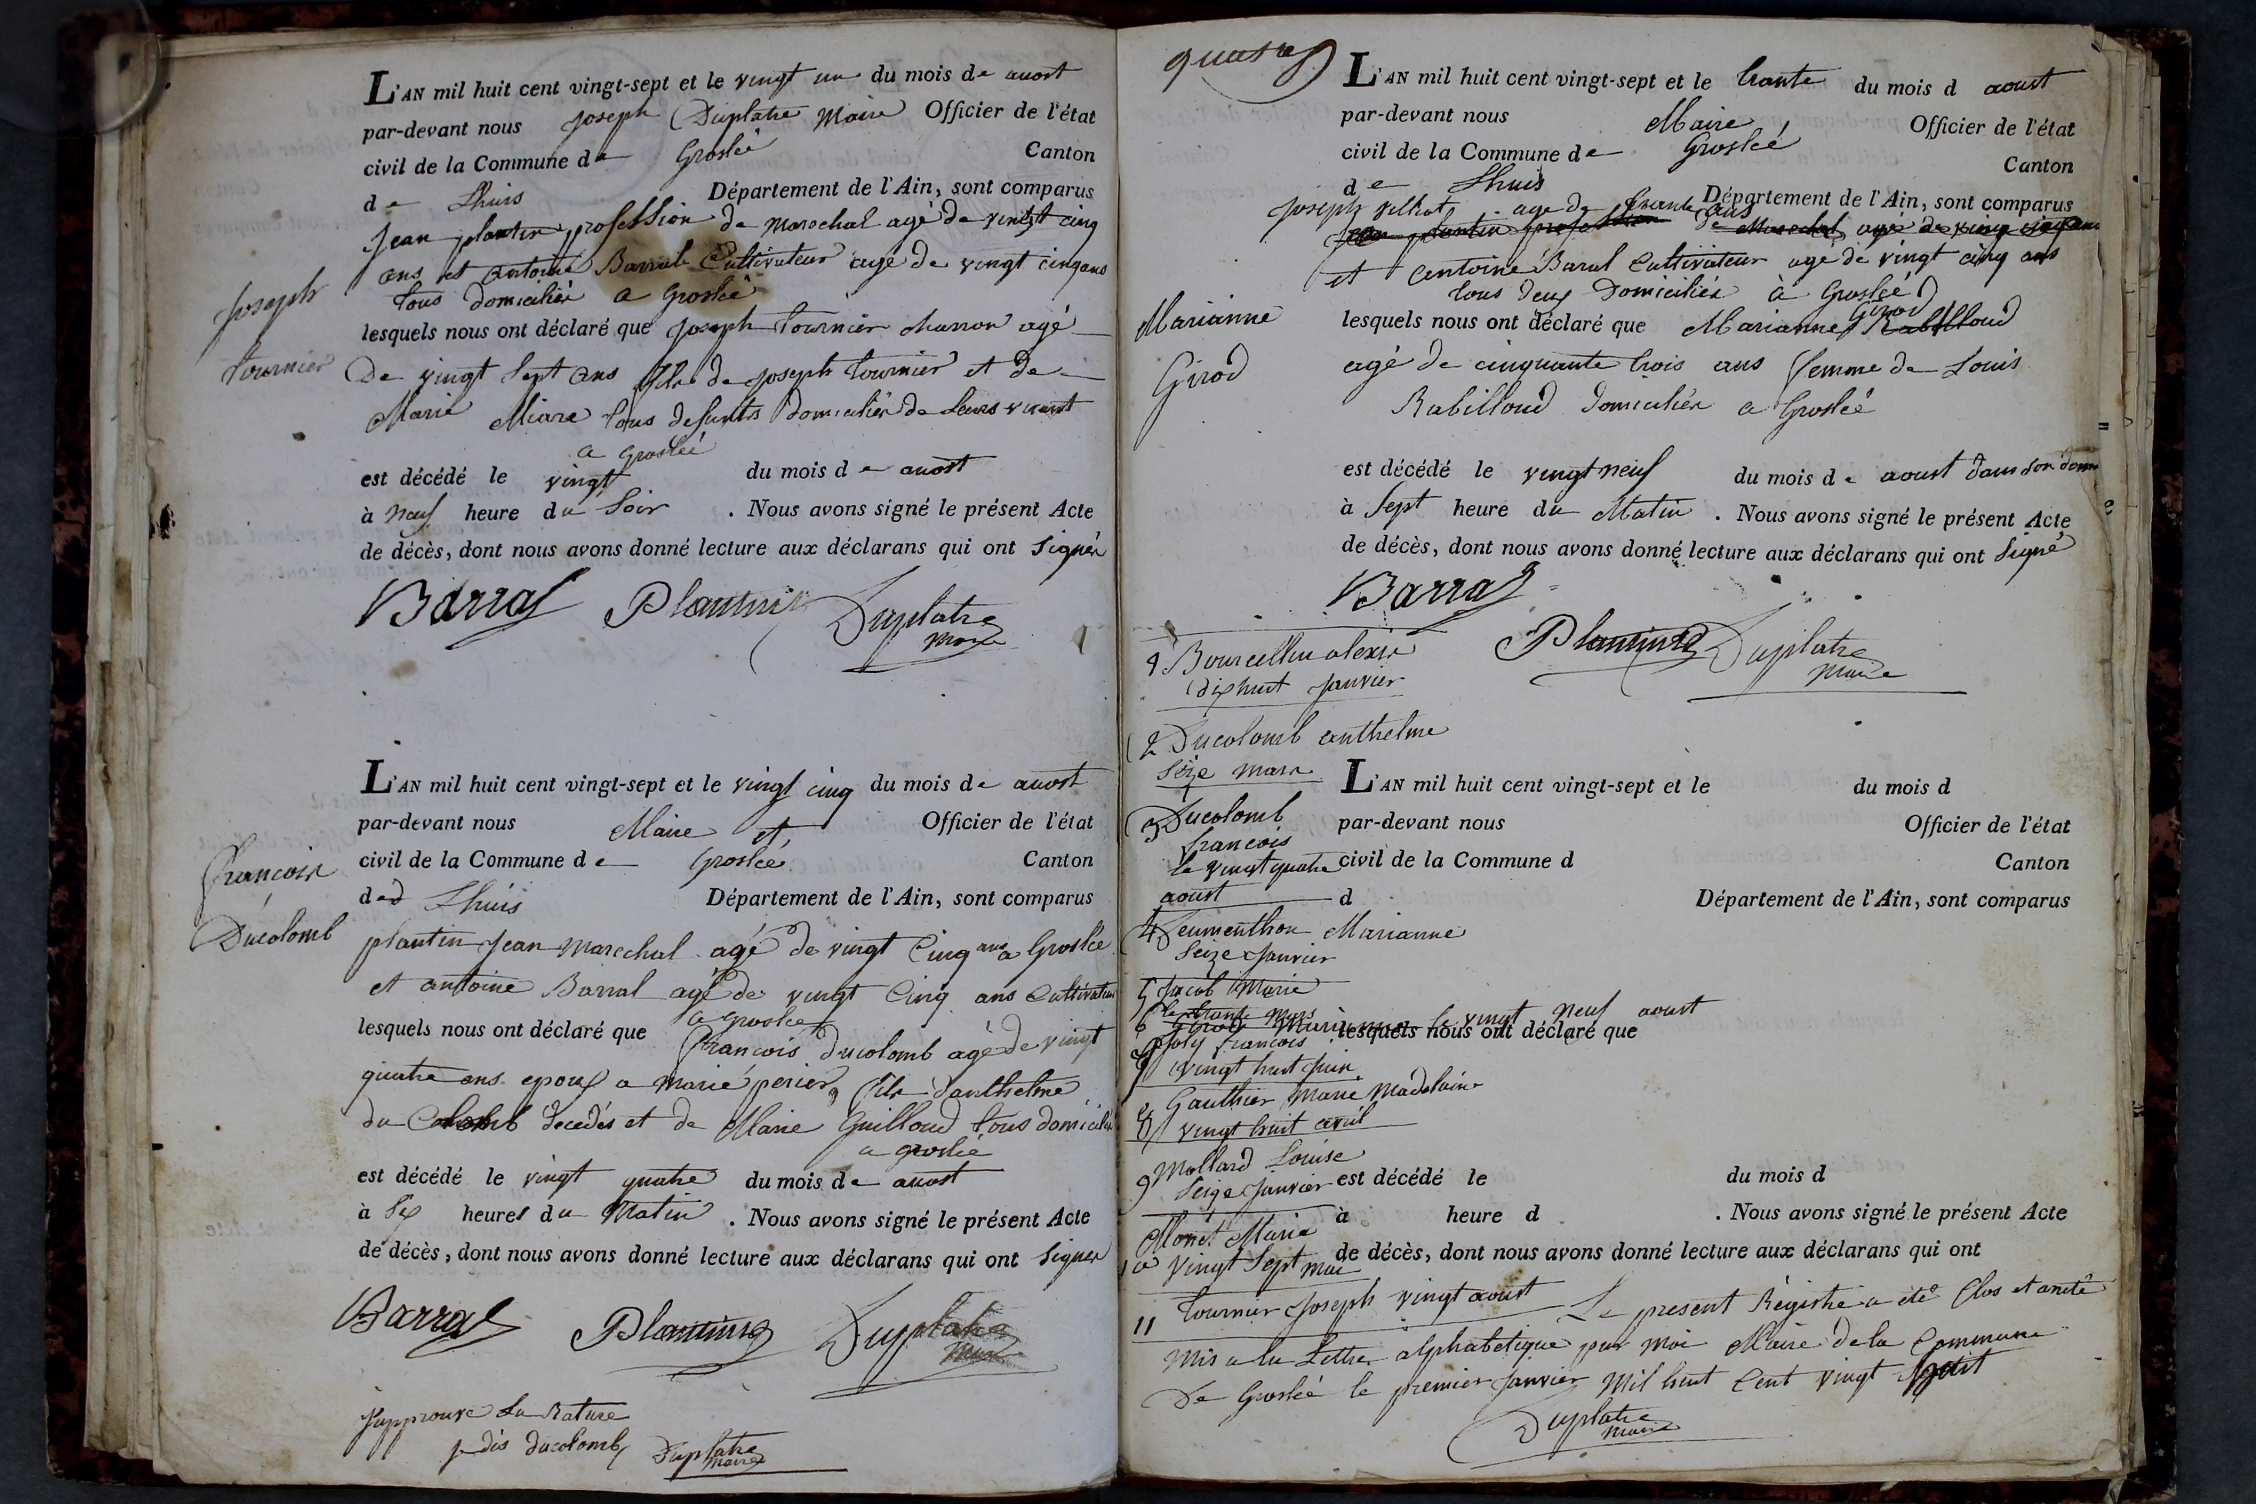 Joseph
tournier
L'AN mil huit cent vingt-sept et le vingt un du mois de auost
par-devant nous Joseph Duplatre Maire Officier de l'état
civil de la Commune de Groslée Canton
de Lhuis Département de l'Ain, sont comparus
Jean plantin profession de marechal agé de vingt cinq
ans et antoine Barral Cultivateur age de vingt cinq ans
tous domiciliés a Groslée
lesquels nous ont déclaré que Joseph tournier charron agé
De vingt sept ans fils de Joseph tournier et de
Marie Miare tous defunts domiciliés de Leurs vivant
a Groslée
est décédé le vingt du mois de auost
à neuf heure du Soir . Nous avons signé le présent Acte
de décès, dont nous avons donné lecture aux déclarans qui ont signés
Barral Plantin Duplatre
maire
francois
Ducolomb
L'AN mil huit cent vingt-sept et le vingt cinq du mois de auost
par-devant nous Maire et Officier de l'état
civil de la Commune de Groslée Canton
de Lhuis Département de l'Ain, sont comparus
plantin Jean marechal agé de vingt Cinq ans a Groslée
et antoine Barral agé de vingt Cinq ans Cultivateur
a Groslée
lesquels nous ont déclaré que francois ducolomb agé de vingt
quatre ans epoux a marie perier fils d'anthelme
du Colomb decedés et de Marie Guilloud tous domiciliés
a groslée
est décédé le vingt quatre du mois de auost
à Six heures du Matin . Nous avons signé le présent Acte
de décès, dont nous avons donné lecture aux déclarans qui ont signés
Barral Plantin Duplatre
maire
J'approuve La Rature
je dis ducolomb Duplatre
maire
quatre
L'AN mil huit cent vingt-sept et le trante du mois d aoust
par-devant nous Maire Officier de l'état
civil de la Commune de Groslée Canton
de Lhuis Département de l'Ain, sont comparus
Joseph age de trante ans
Jean plantin profession de Marechal agé de vinq cinq ans
et antoine Baral Cultivateur age de vingt cinq ans
tous deux Domiciliés à Groslée
Marianne
Girod
Girod
lesquels nous ont déclaré que Marianne Rabilloud
agé de cinquante trois ans femme de Louis
Rabilloud domiciliés a Groslée
est décédé le vingt neuf du mois de aoust dans son dom
à Sept heure du Matin . Nous avons signé le présent Acte
de décès, dont nous avons donné lecture aux déclarans qui ont signé
Barral
Plantin Duplatre
maire
1 Bourcellin alexis
dixhuit Janvier
2 Ducolomb anthelme
Seize mars
3 Ducolomb
francois
le vingt quatre
aoust
4 Marianne
Seize Janvier
5 Jacob Marie
le trante Mars
6 Girod Marianne le vingt neuf aoust
7 Joly francois
vingt huit Juin
8 Gauthier Marie Madelaine
vingt huit avril
9 Mollard Louise
Seize Janvier
10 Monet Marie
vingt Sept mai
11 tournier Joseph vingt aoust
L'AN mil huit cent vingt-sept et le du mois d
par-devant nous Officier de l'état
civil de la Commune d Canton
d Département de l'Ain, sont comparus
lesquels nous ont déclaré que
est décédé le du mois d
à heure d . Nous avons signé le présent Acte
de décès, dont nous avons donné lecture aux déclarans qui ont
Le present Régistre a été Clos et areté
Mis a la Lettre alphabetique par moi Maire de la Commune
De Groslée le premier Janvier Mil huit Cent vingt huit
Duplatre
maire